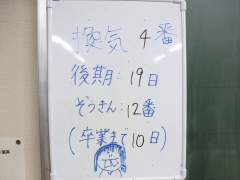 換気 4番
後期:19日
ぞうきん:12番
(卒業まで10日)